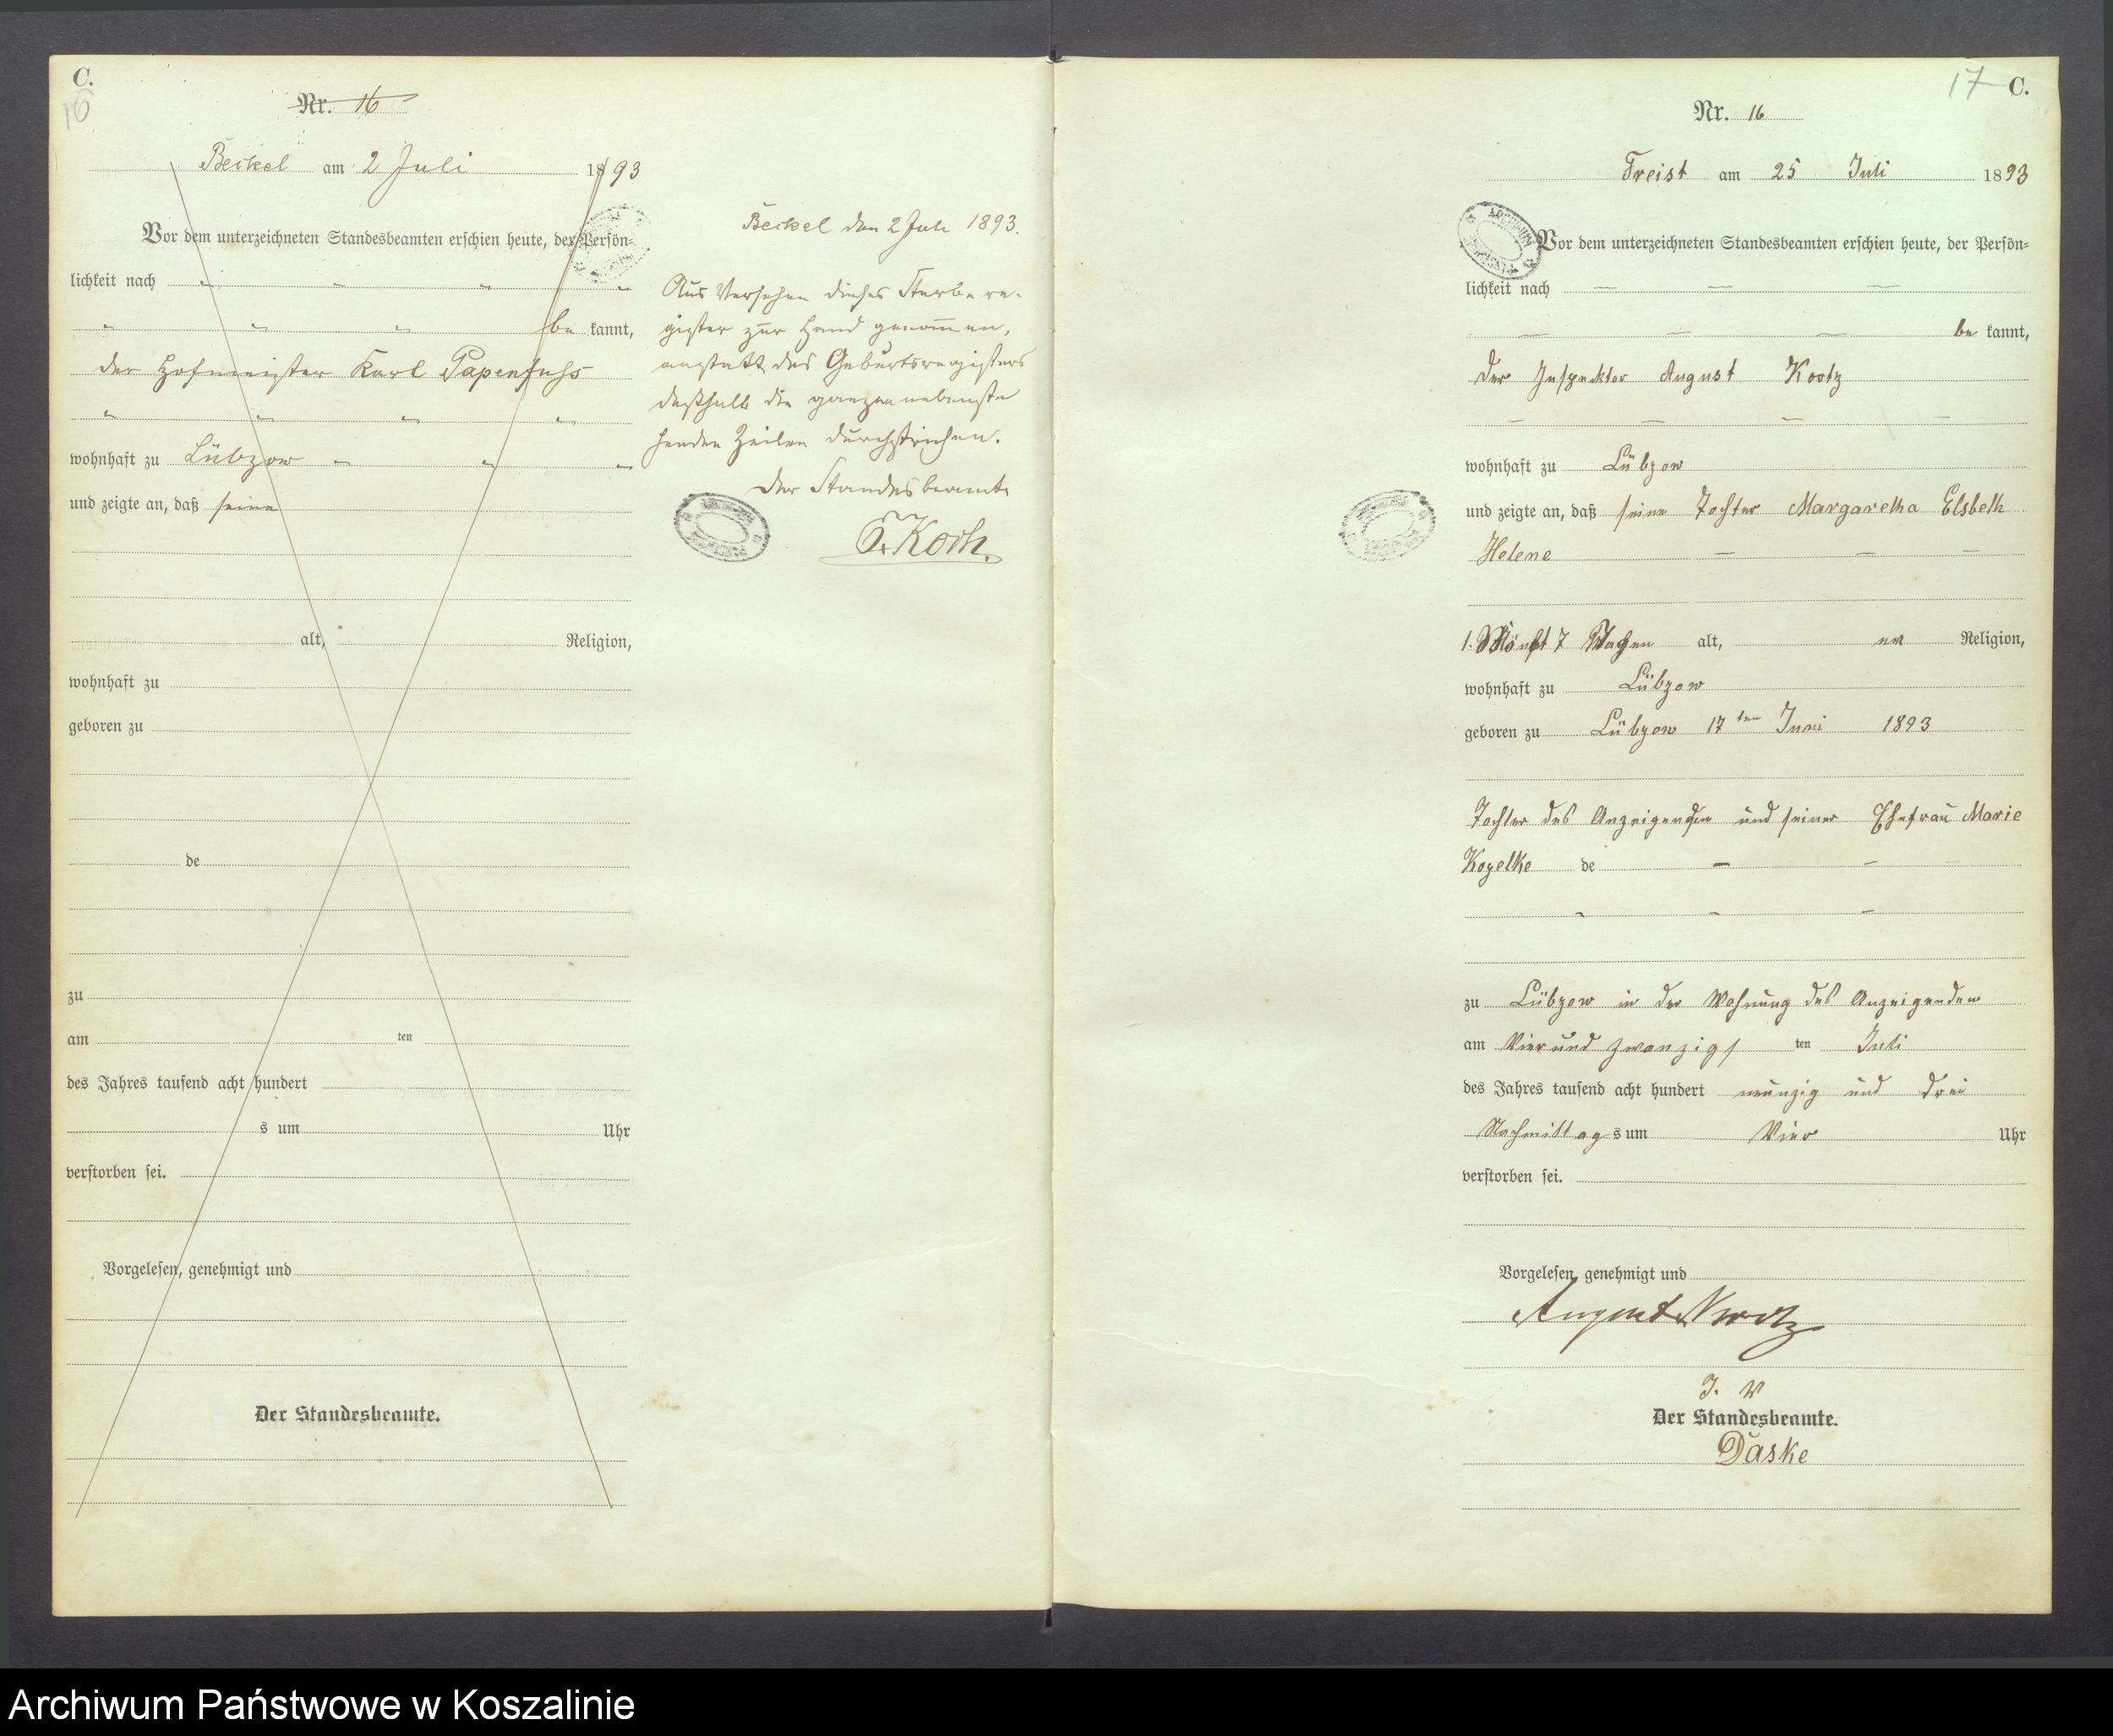 C.
16
Nr. 16
Beckel am 2 Juli 1893
Vor dem unterzeichneten Standesbeamten erschien heute, der Persön-
lichkeit nach
be kannt,
der Hofmeister Karl Papenfuhs
wohnhaft zu Lübzow
und zeigte an, daß seine
alt, Religion,
wohnhaft zu
geboren zu
de
zu
am ten
des Jahres tausend acht hundert
s um Uhr
verstorben sei.
Vorgelesen, genehmigt und
Der Standesbeamte.
Beckel den 2 Juli 1893.
Aus Versehen dieses Sterbere-
gister zur Hand genommen,
anstatt des Geburtsregisters
deßhalb die ganzen nebenste
henden Zeilen durchstrichen.
Der Standesbeamte
Koch.
17 C.
Nr. 16
Freist am 25 Juli 1893
Vor dem unterzeichneten Standesbeamten erschien heute, der Persön-
lichkeit nach
be kannt,
der Inspektor August Kootz
wohnhaft zu Lübzow
und zeigte an, daß seine Tochter Margaretha Elsbeth
Helene
1. Monat 7 Tagen alt, ev Religion,
wohnhaft zu Lübzow
geboren zu Lübzow 17ten Juni 1893
Tochter des Anzeigenden und seiner Ehefrau Marie
Kozelke de
zu Lübzow in der Wohnung des Anzeigenden
am Vier und zwanzigs ten Juli
des Jahres tausend acht hundert neunzig und drei
Nachmittag s um Vier Uhr
verstorben sei.
Vorgelesen, genehmigt und
August Kootz
I. V
Der Standesbeamte.
Daske
Archiwum Państwowe w Koszalinie